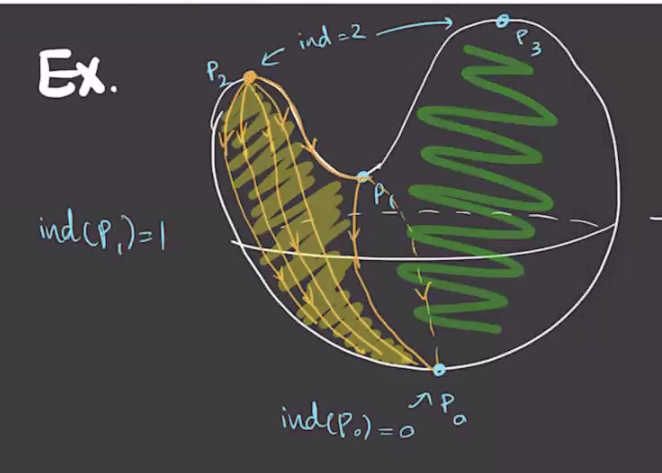 Ex.
P₂
ind=2
P₃
P₁
ind(P₁)=1
ind(P₀)=0
P₀